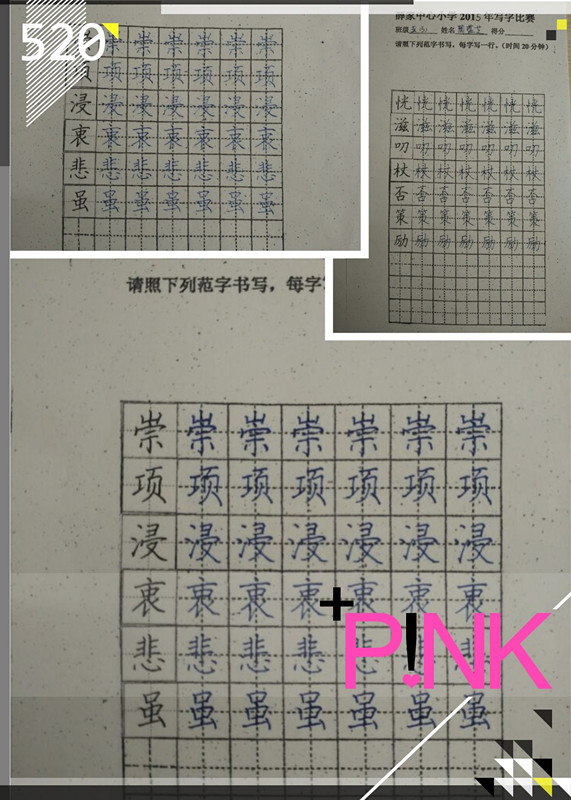 520
崇 崇 崇 崇 崇 崇
项 项 项 项 项 项
浸 浸 浸 浸 浸 浸 浸
衷 衷 衷 衷 衷 衷 衷
悲 悲 悲 悲 悲 悲 悲
虽 虽 虽 虽 虽 虽 虽
薛家中心小学 2015 年写字比赛
班级 姓名 得分
请照下列范字书写，每字写一行，（时间 20 分钟）
恍 恍 恍 恍 恍 恍 恍
滋 滋 滋 滋 滋 滋 滋
叨 叨 叨 叨 叨 叨 叨
杖 杖 杖 杖 杖 杖 杖
否 否 否 否 否 否 否
策 策 策 策 策 策 策
励 励 励 励 励 励 励
请照下列范字书写，每字
崇 崇 崇 崇 崇 崇 崇
项 项 项 项 项 项 项
浸 浸 浸 浸 浸 浸 浸
衷 衷 衷 衷 衷 衷 衷
悲 悲 悲 悲 悲 悲
虽 虽 虽 虽 虽 虽 虽
+P!NK